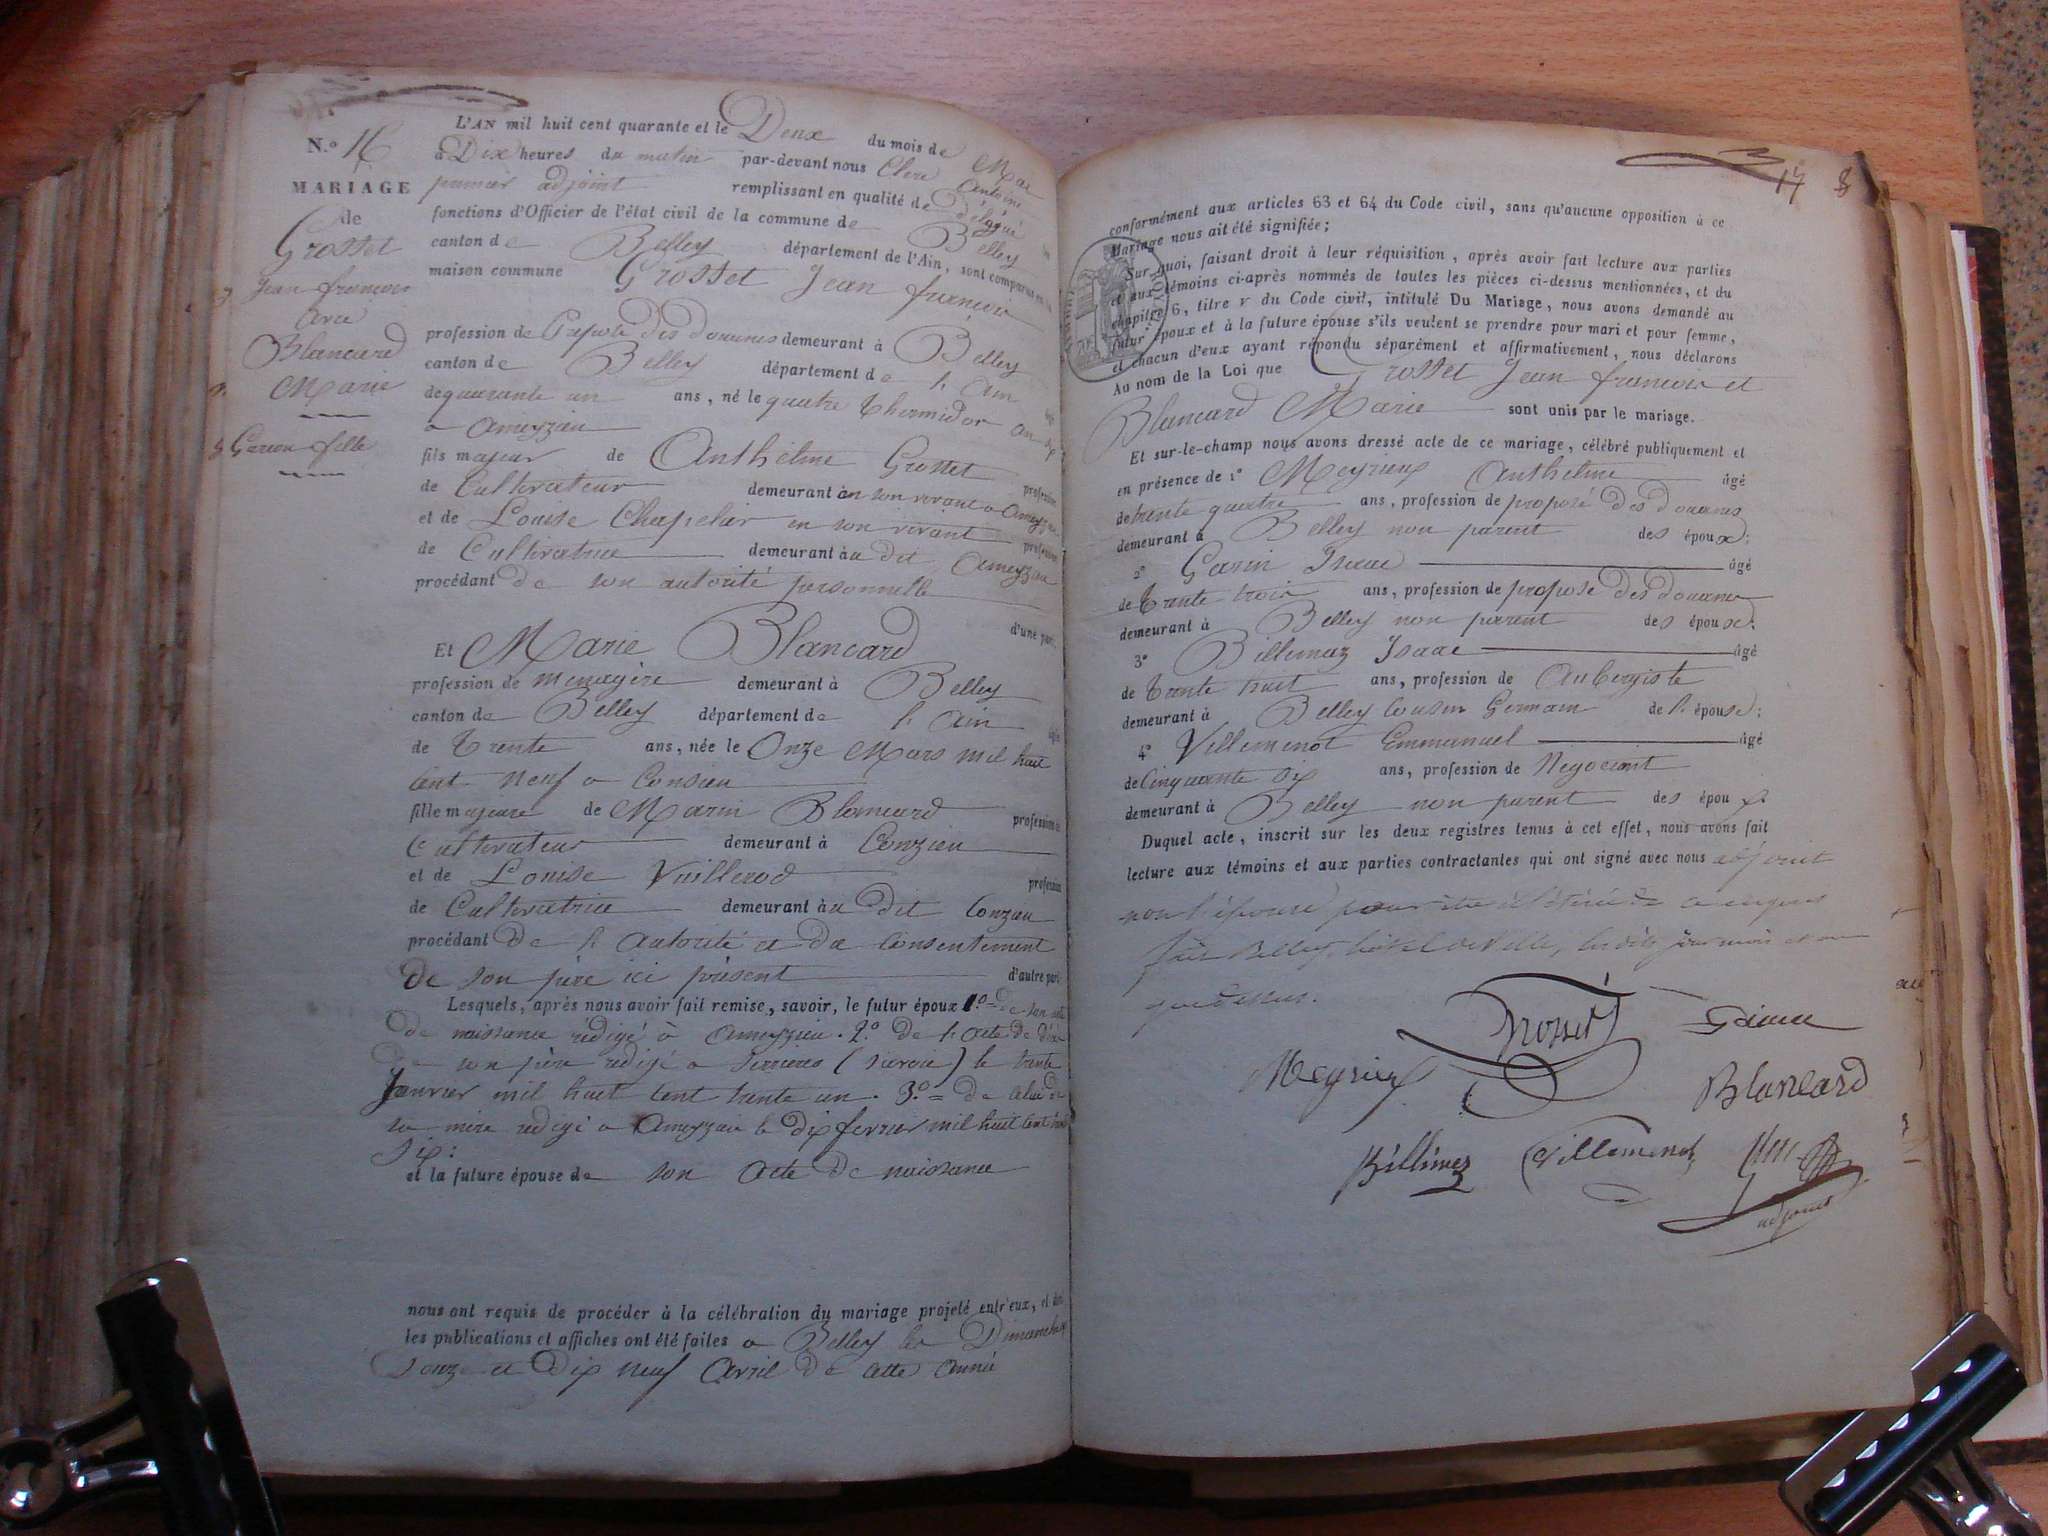 N.º 16
MARIAGE
de
Grosset
Jean françois
avec
Blancard
Marie
Garcon fille
L'AN mil huit cent quarante et le Deux du mois de Mai
à Dix heures du matin par-devant nous Clerc Antoine
premier adjoint remplissant en qualité de délégué
fonctions d'Officier de l'état civil de la commune de Belley
canton de Belley département de l'Ain, sont comparus en
maison commune Grosset Jean françois
profession de Préposé des douanes demeurant à Belley
canton de Belley département de l'Ain
de quarante un ans, né le quatre thermidor an
a Ameyzieu
fils majeur de Anthelme Grosset profession
de Cultivateur demeurant en son vivant a Ameyzieu
et de Louise Chapelain en son vivant profession
de Cultivatrice demeurant au dit Ameyzieu
procédant de son autorité personnelle
d'une part.
Et Marie Blancard
profession de menagère demeurant à Belley
canton de Belley département de l'Ain
de trente ans, née le Onze Mars mil huit
cent neuf a Conzieu
fille majeure de Marin Blancard profession
Cultivateur demeurant à Conzieu
et de Louise Vuillerod profession
de Cultivatrice demeurant au dit Conzieu
procédant de l'autorité et du consentement
de son père ici présent d'autre part
Lesquels, après nous avoir fait remise, savoir, le futur époux 1.º de son acte
de naissance rédigé à Ameyzieu. 2.º de l'acte de décès
de son père redigé a Serrieres (Savoie) le trente
Janvier mil huit cent trente un. 3.º de celui de
sa mère redigé a Ameyzieu le dix fevrier mil huit cent
six:
et la future épouse de son acte de naissance
nous ont requis de procéder à la célébration du mariage projeté entr'eux, et dont
les publications et affiches ont été faites a Belley les Dimanches
Douze et dix neuf Avril de cette année
17 8
conformément aux articles 63 et 64 du Code civil, sans qu'aucune opposition à ce
Mariage nous ait été signifiée;
Sur quoi, faisant droit à leur réquisition, après avoir fait lecture aux parties
et aux témoins ci-après nommés de toutes les pièces ci-dessus mentionnées, et du
chapitre 6, titre v du Code civil, intitulé Du Mariage, nous avons demandé au
futur époux et à la future épouse s'ils veulent se prendre pour mari et pour femme,
et chacun d'eux ayant répondu séparément et affirmativement, nous déclarons
Au nom de la Loi que Grosset Jean françois et
Blancard Marie sont unis par le mariage.
Et sur-le-champ nous avons dressé acte de ce mariage, célébré publiquement et
en présence de 1º Meyrieux Anthelme âgé
de trente quatre ans, profession de préposé des douanes
demeurant à Belley non parent des époux;
2º Garin Isaac âgé
de trente trois ans, profession de préposé des douanes
demeurant à Belley non parent des époux.
3º Billemaz Isaac âgé
de trente huit ans, profession de Aubergiste
demeurant à Belley Cousin Germain de l'épouse;
4º Villemenot Emmanuel âgé
de Cinquante six ans, profession de Négociant
demeurant à Belley non parent des époux.
Duquel acte, inscrit sur les deux registres tenus à cet effet, nous avons fait
lecture aux témoins et aux parties contractantes qui ont signé avec nous adjoint
non l'épouse pour être illétérée de ce enquis
fait Belley, hôtel de Ville, lesdits jour mois et an
que dessus.
Grosset
Meyrieux
Blancard
Billemaz
Villemenot
adjoint